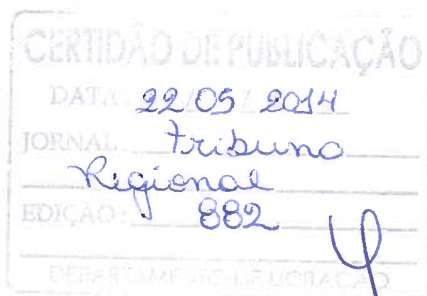 CERTIDÃO DE PUBLICAÇÃO
DATA 22/05/2014
JORNAL Tribuna
Regional
EDIÇÃO: 882
DEPARTAMENTO DE LICITAÇÃO